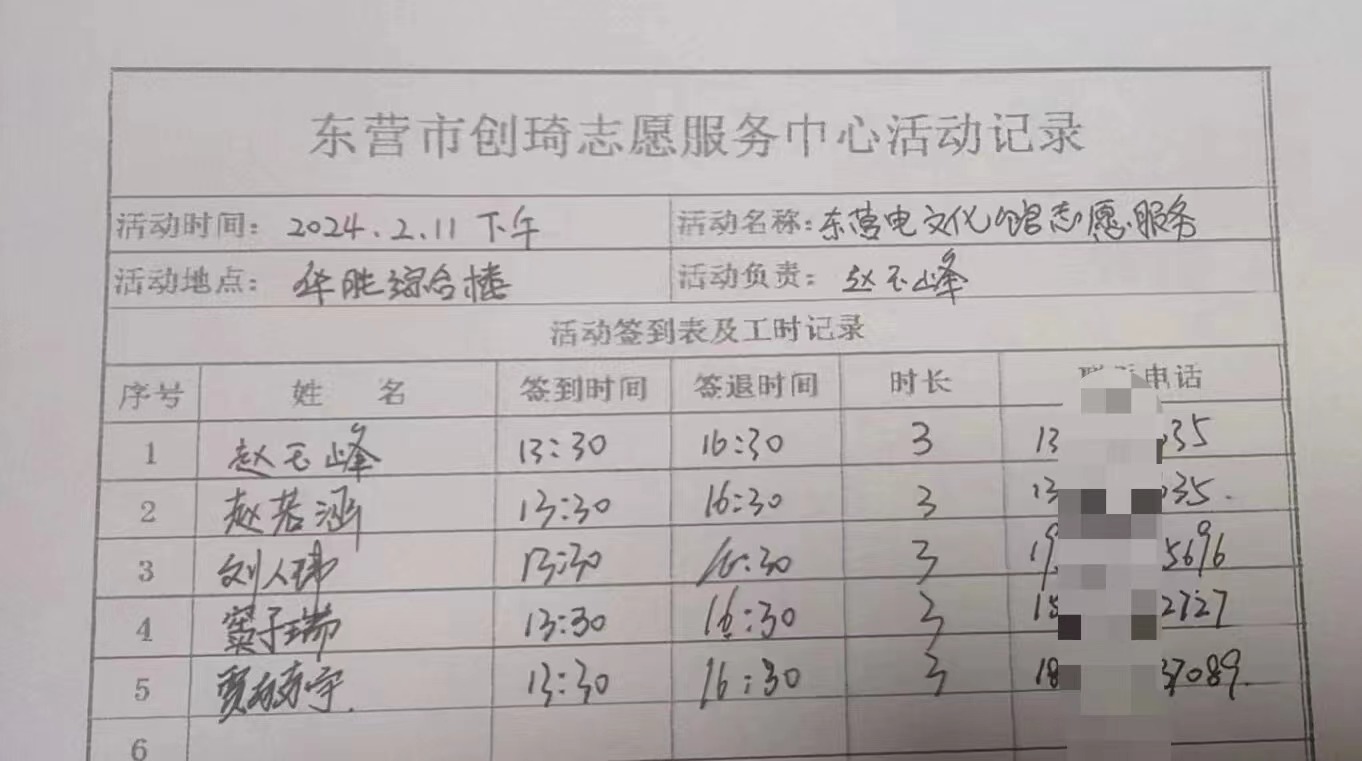 东营市创琦志愿服务中心活动记录
活动时间: 2024.2.11 下午 活动名称: 东营电文化馆志愿服务
活动地点: 华胜综合楼 活动负责: 赵玉峰
活动签到表及工时记录
序号 姓 名 签到时间 签退时间 时长 联系电话
1 赵玉峰 13:30 16:30 3 13 35
2 赵若涵 13:30 16:30 3 13 035.
3 刘人玮 13:30 16:30 3 19 5696
4 窦子瑞 13:30 16:30 3 15 2727
5 贾 宇. 13:30 16:30 3 18 37089.
6